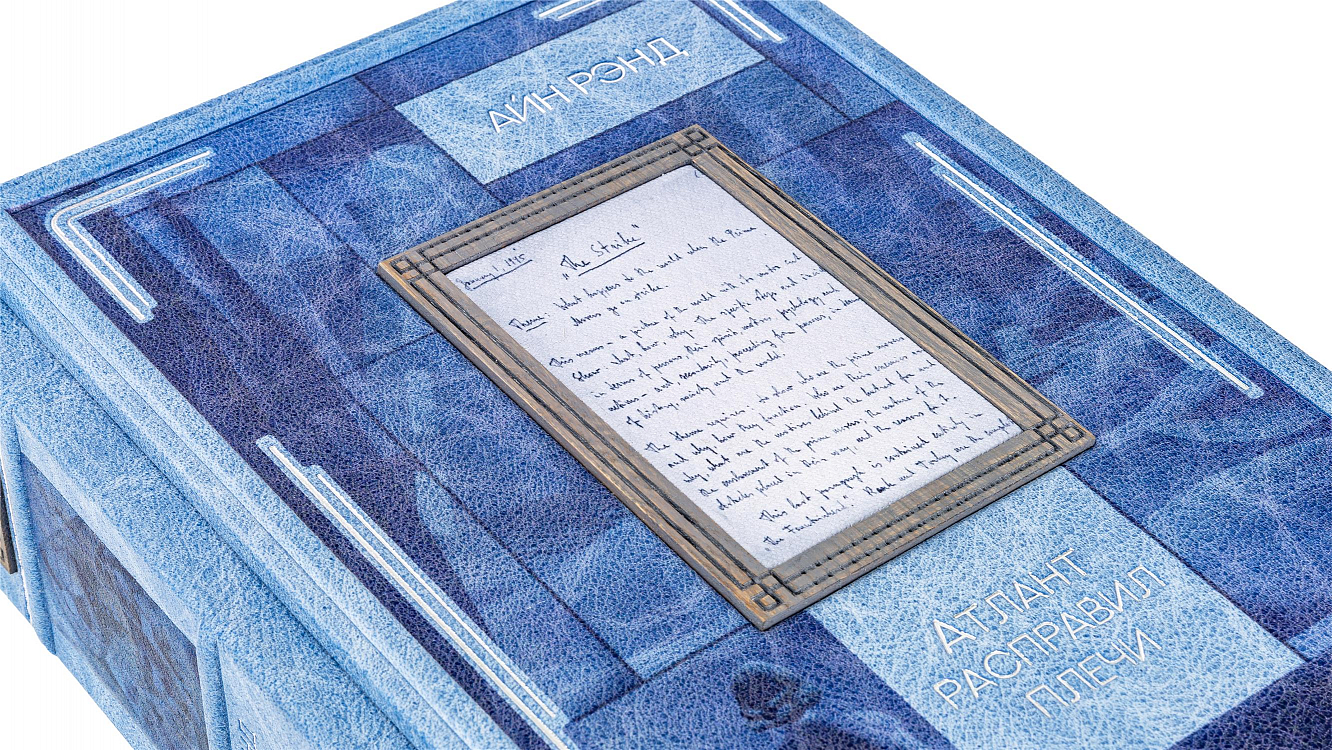 АЙН РЭНД
January 1, 1945
"The Strike"
Theme: What happens to the world when the Prime
Movers go on strike.
This means a picture of the world with its motor cut
Show what, how, why. The specific steps and
in terms of persons, their spirits, motives, psychology and
actions and, secondarily, proceeding from persons, in
of history, society and the world.
The theme requires: to show who are the prime movers
and why, how they function. Who are their enemies
why, what are the motives behind the hatred for and
the enslavement of the prime movers; the nature of the
obstacles placed in their way, and the reasons for it.
This last paragraph is contained entirely in
"The Fountainhead." Roark and Toohey are the
АТЛАНТ
РАСПРАВИЛ
ПЛЕЧИ